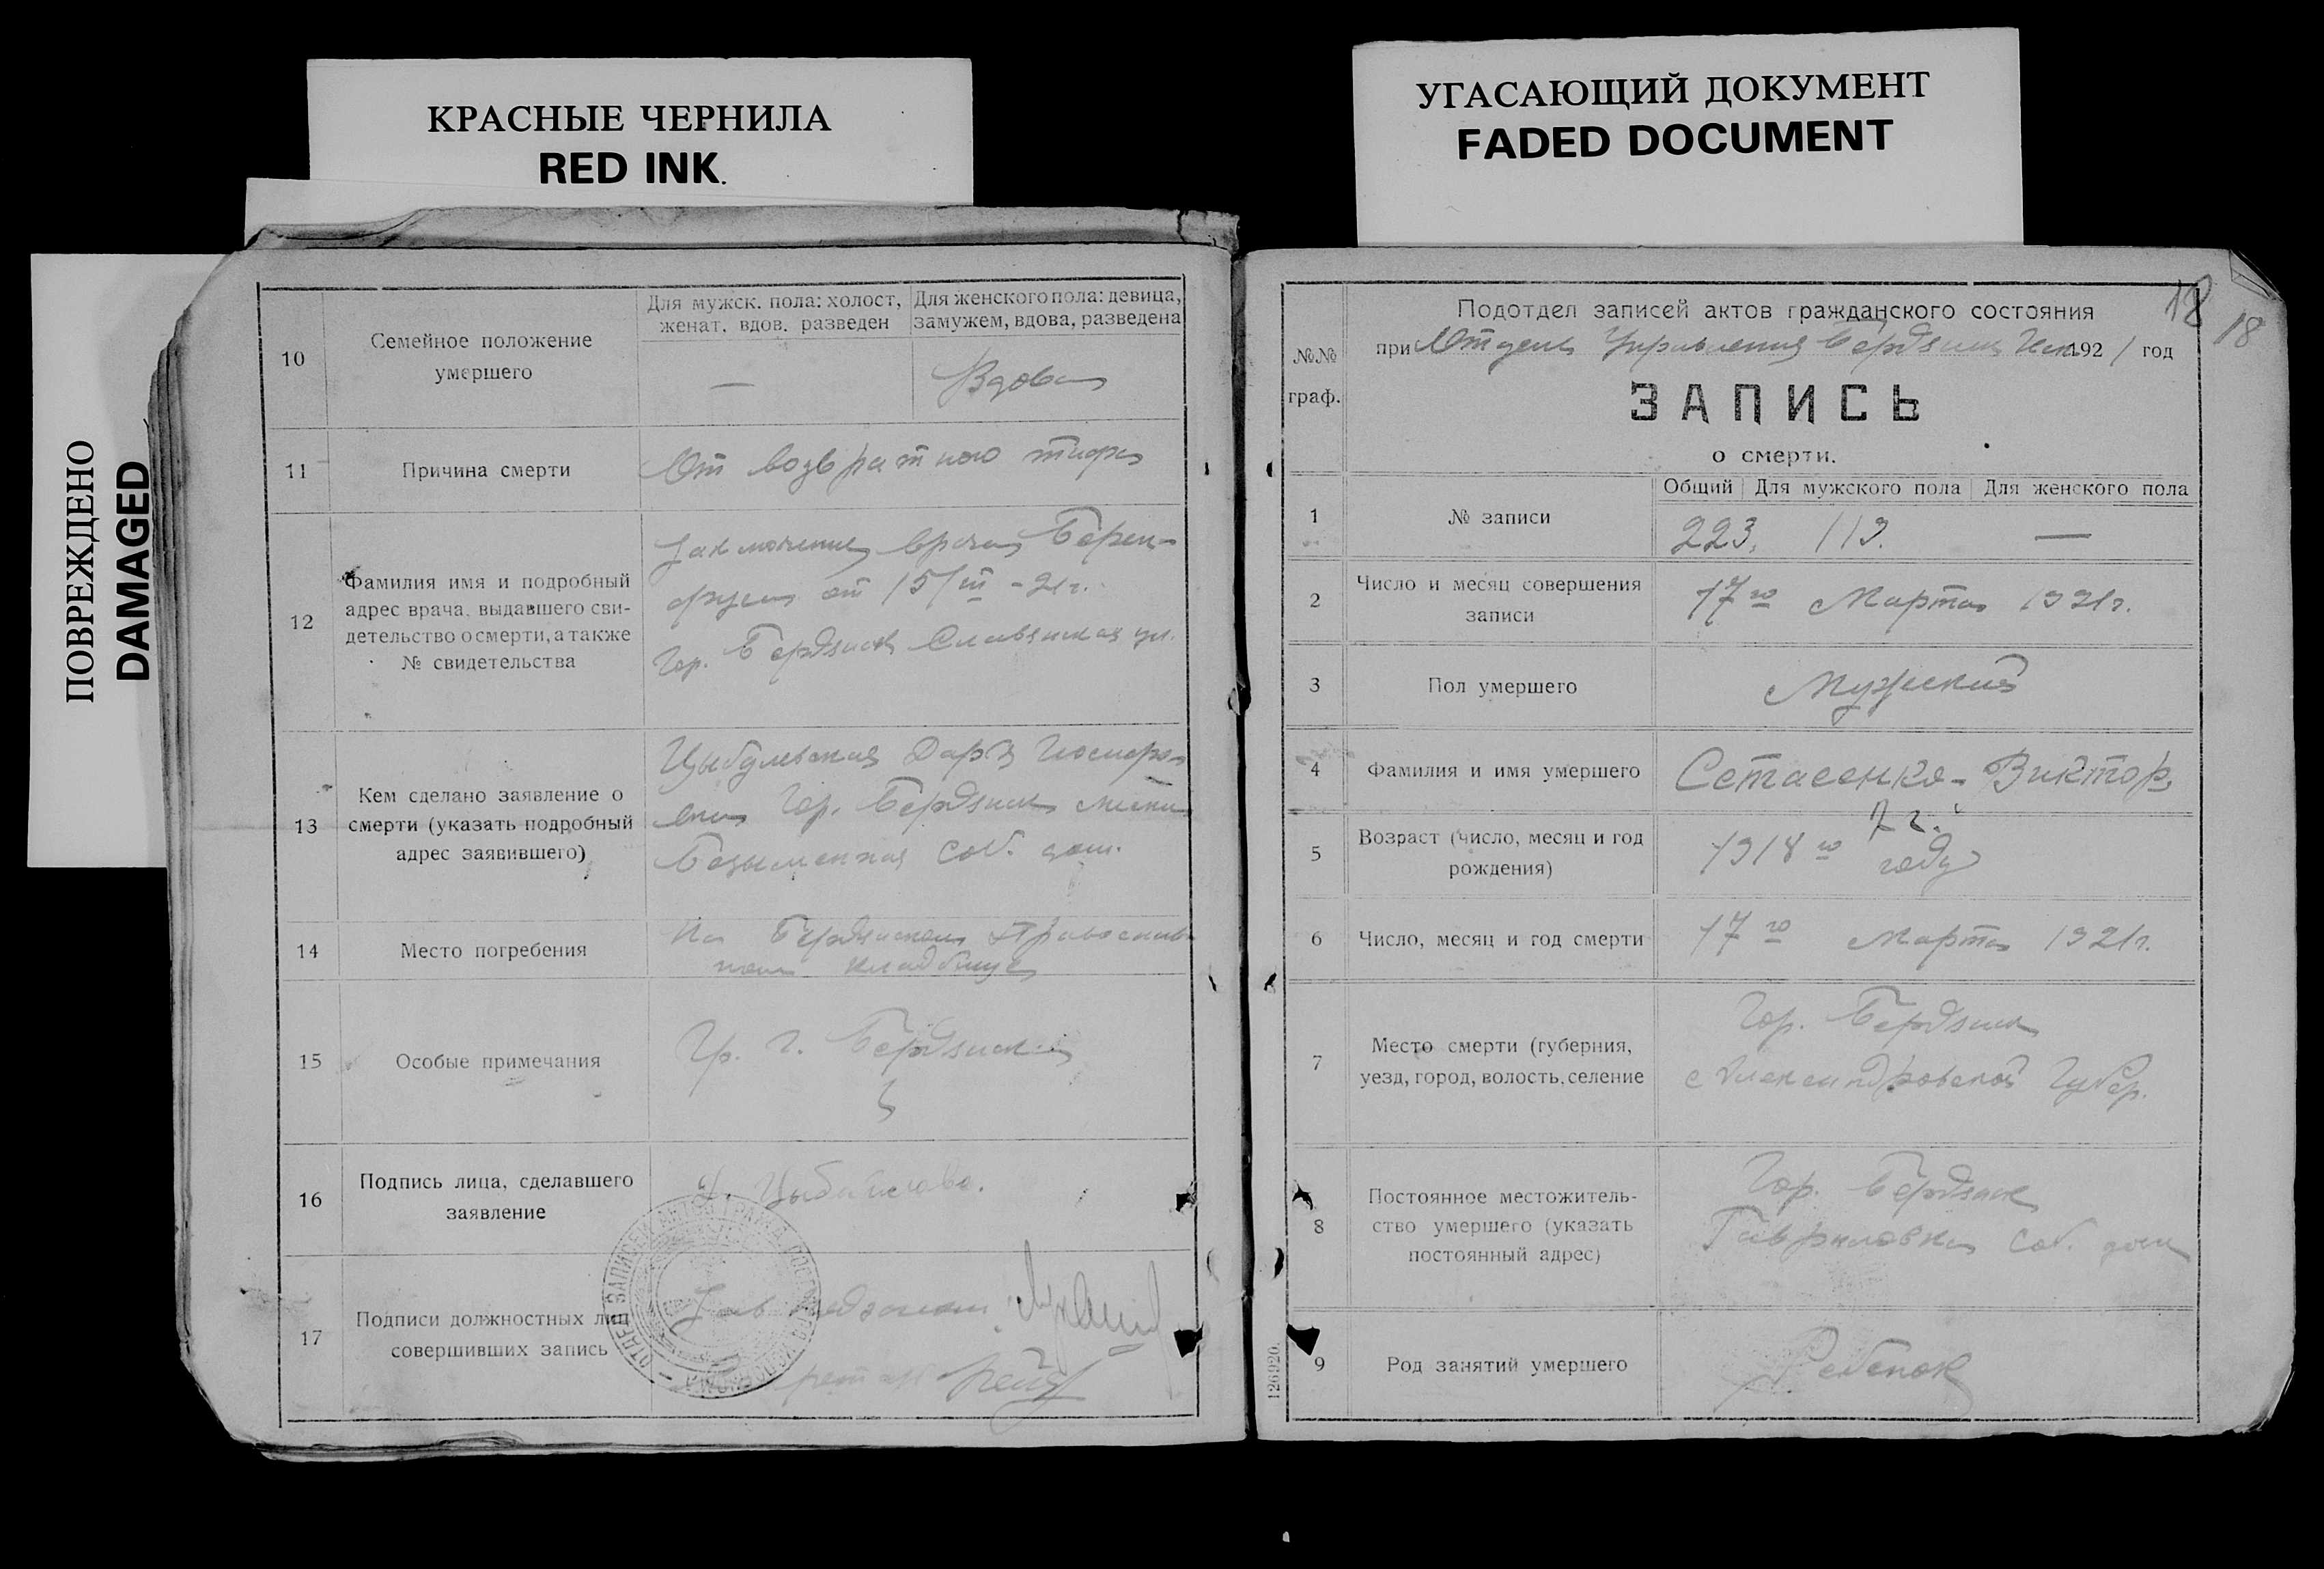 КРАСНЫЕ ЧЕРНИЛА
RED INK.
УГАСАЮЩИЙ ДОКУМЕНТ
FADED DOCUMENT
ПОВРЕЖДЕНО
DAMAGED
10
Семейное положение
умершего
Для мужск. пола: холост,
женат, вдов. разведен
Для женского пола: девица,
замужем, вдова, разведена
—
Вдова
11
Причина смерти
От возвратного тифа
12
Фамилия имя и подробный
адрес врача, выдавшего сви-
детельство о смерти, а также
№ свидетельства
Заключение врача
от 15/III - 21 г.
Гор. Бердянск Славянская ул.
13
Кем сделано заявление о
смерти (указать подробный
адрес заявившего)
Цыбулевская Дарья
Гор. Бердянск
Безыменная соб. дом.
14
Место погребения
На Бердянском Православ-
ном кладбище
15
Особые примечания
Гр. г. Бердянска
16
Подпись лица, сделавшего
заявление
Д.
17
Подписи должностных лиц
совершивших запись
Зав
18
18
№№
граф.
Подотдел записей актов гражданского состояния
при Отделе Управления Бердянск 1921 год
ЗАПИСЬ
о смерти.
1
№ записи
Общий
Для мужского пола
Для женского пола
223.
119.
—
2
Число и месяц совершения
записи
17го Марта 1921 г.
3
Пол умершего
Мужской
4
Фамилия и имя умершего
Сетасенко - Виктор
5
Возраст (число, месяц и год
рождения)
7 г.
1918 го году
6
Число, месяц и год смерти
17го Марта 1921 г.
7
Место смерти (губерния,
уезд, город, волость, селение
Гор. Бердянск
Александровской Губер.
8
Постоянное местожитель-
ство умершего (указать
постоянный адрес)
Гор. Бердянск
Гавриловка соб. дом
9
Род занятий умершего
Ребенок
126920.